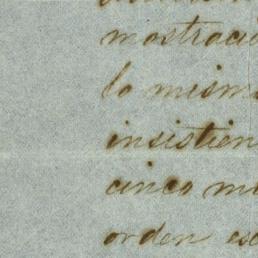 mostració
lo mism
insistien
cinco m
orden es